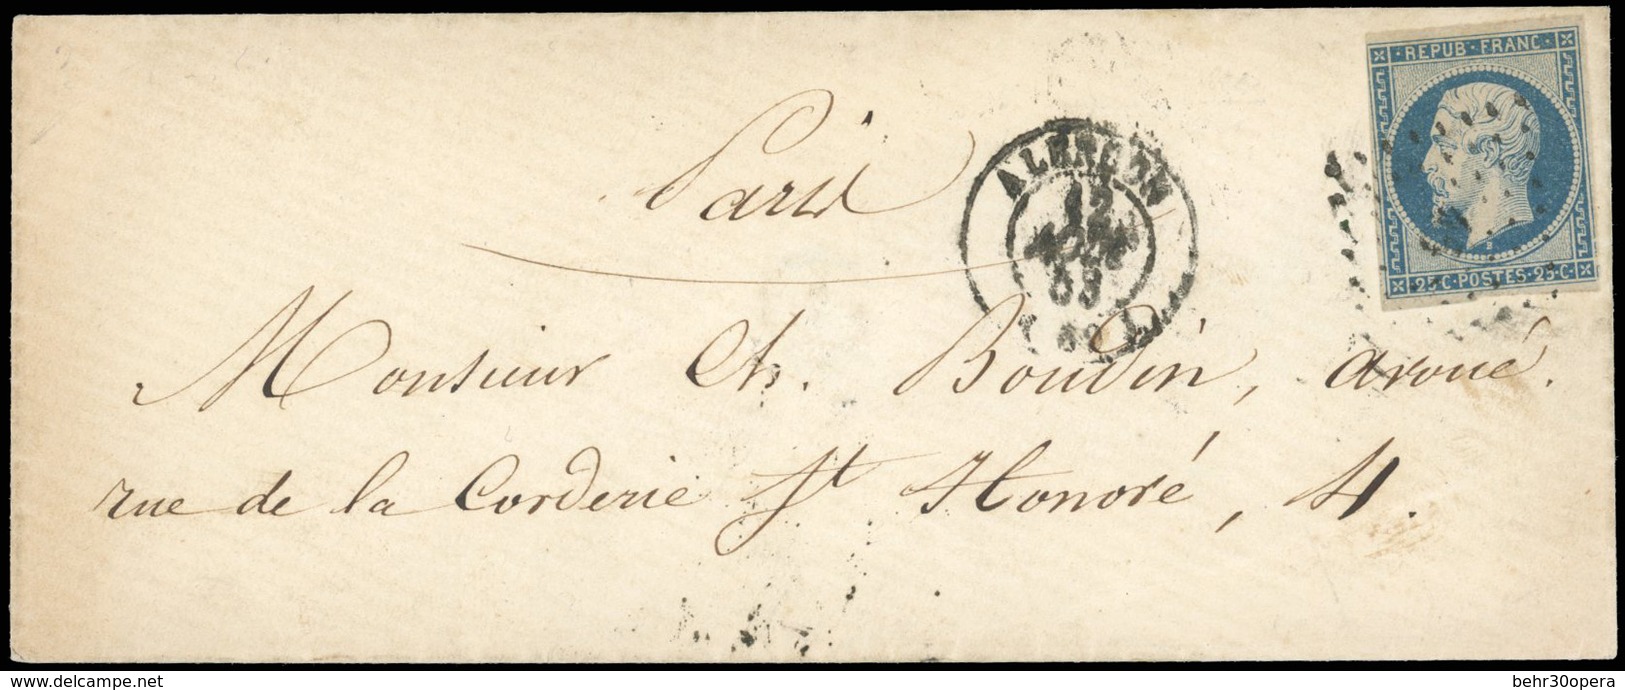 REPUB · FRANC
25 · C · POSTES · 25 · C ·
Paris
ALENÇON
12
AOUT
53
Monsieur Ch. Boudin, avoué.
rue de la Corderie St Honoré, 4.
delcampe.net
behr30opera